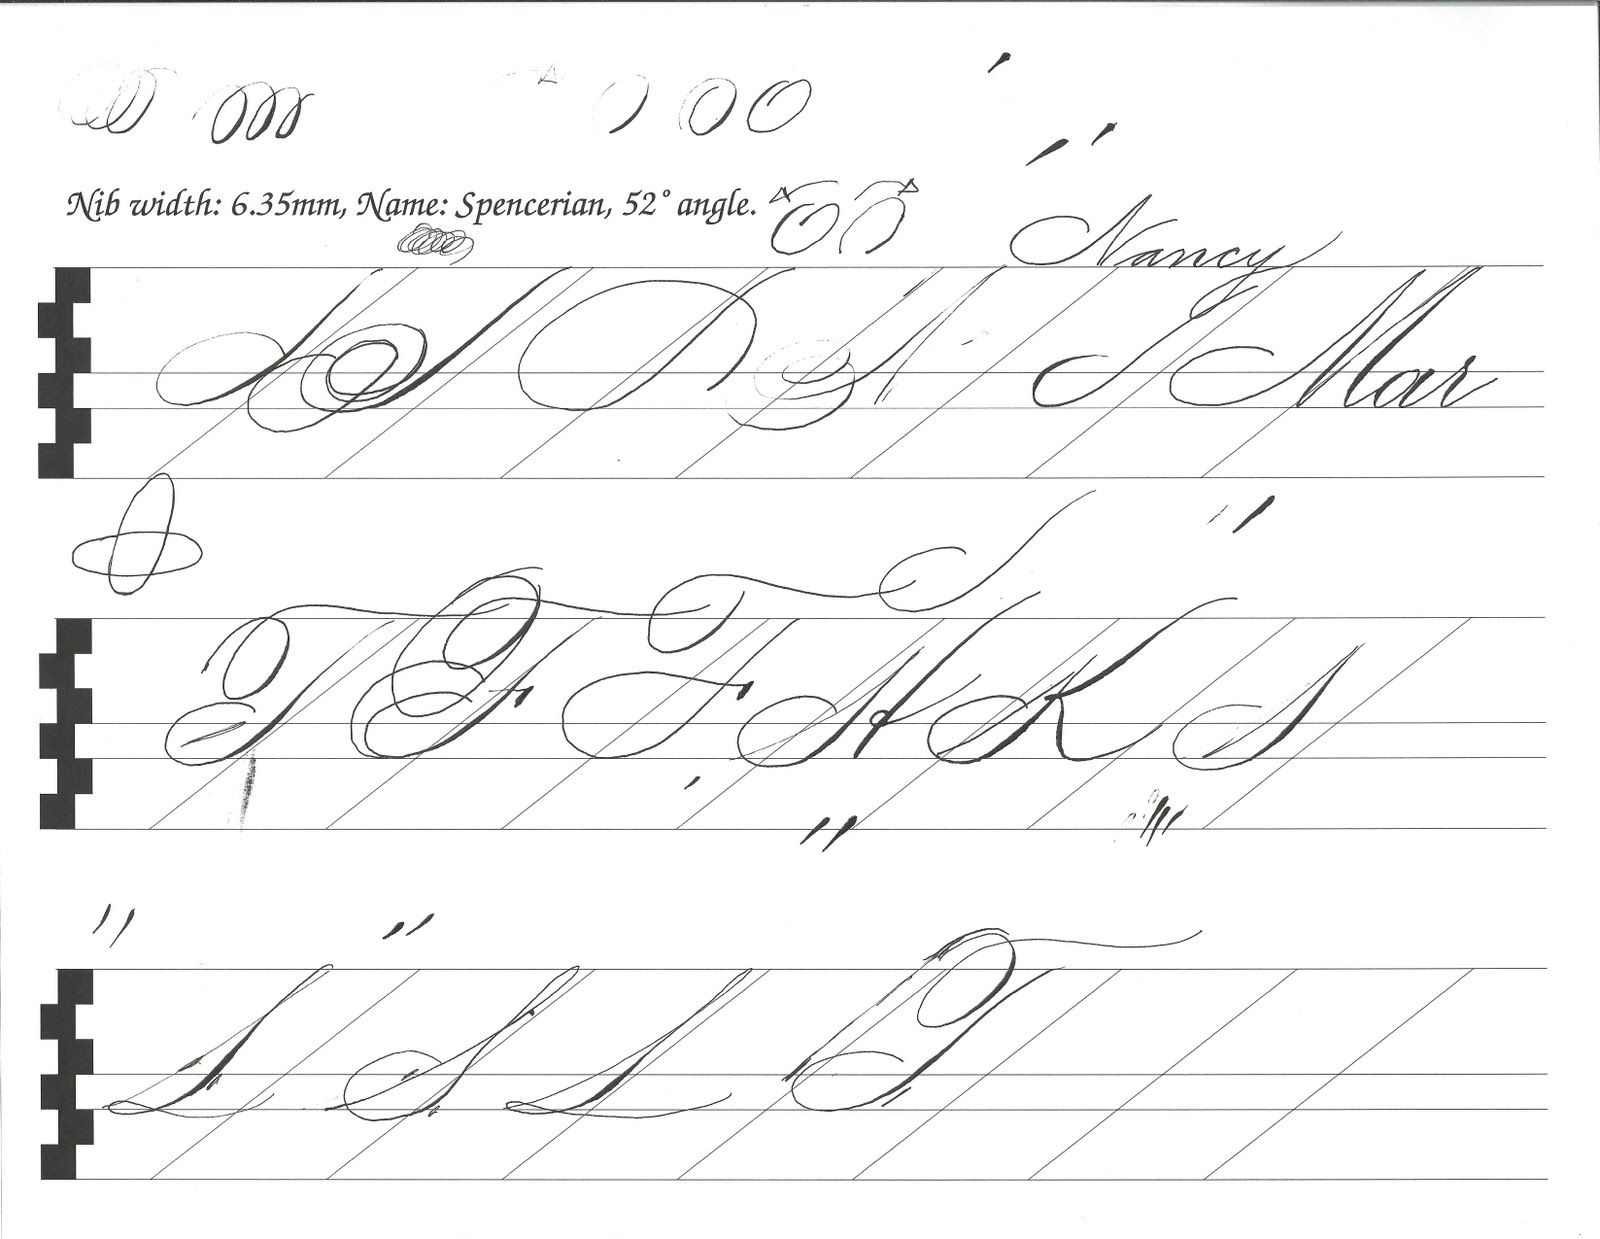 Nib width: 6.35mm, Name: Spencerian, 52° angle.
Nancy
Mar
T F F H K
L S L T